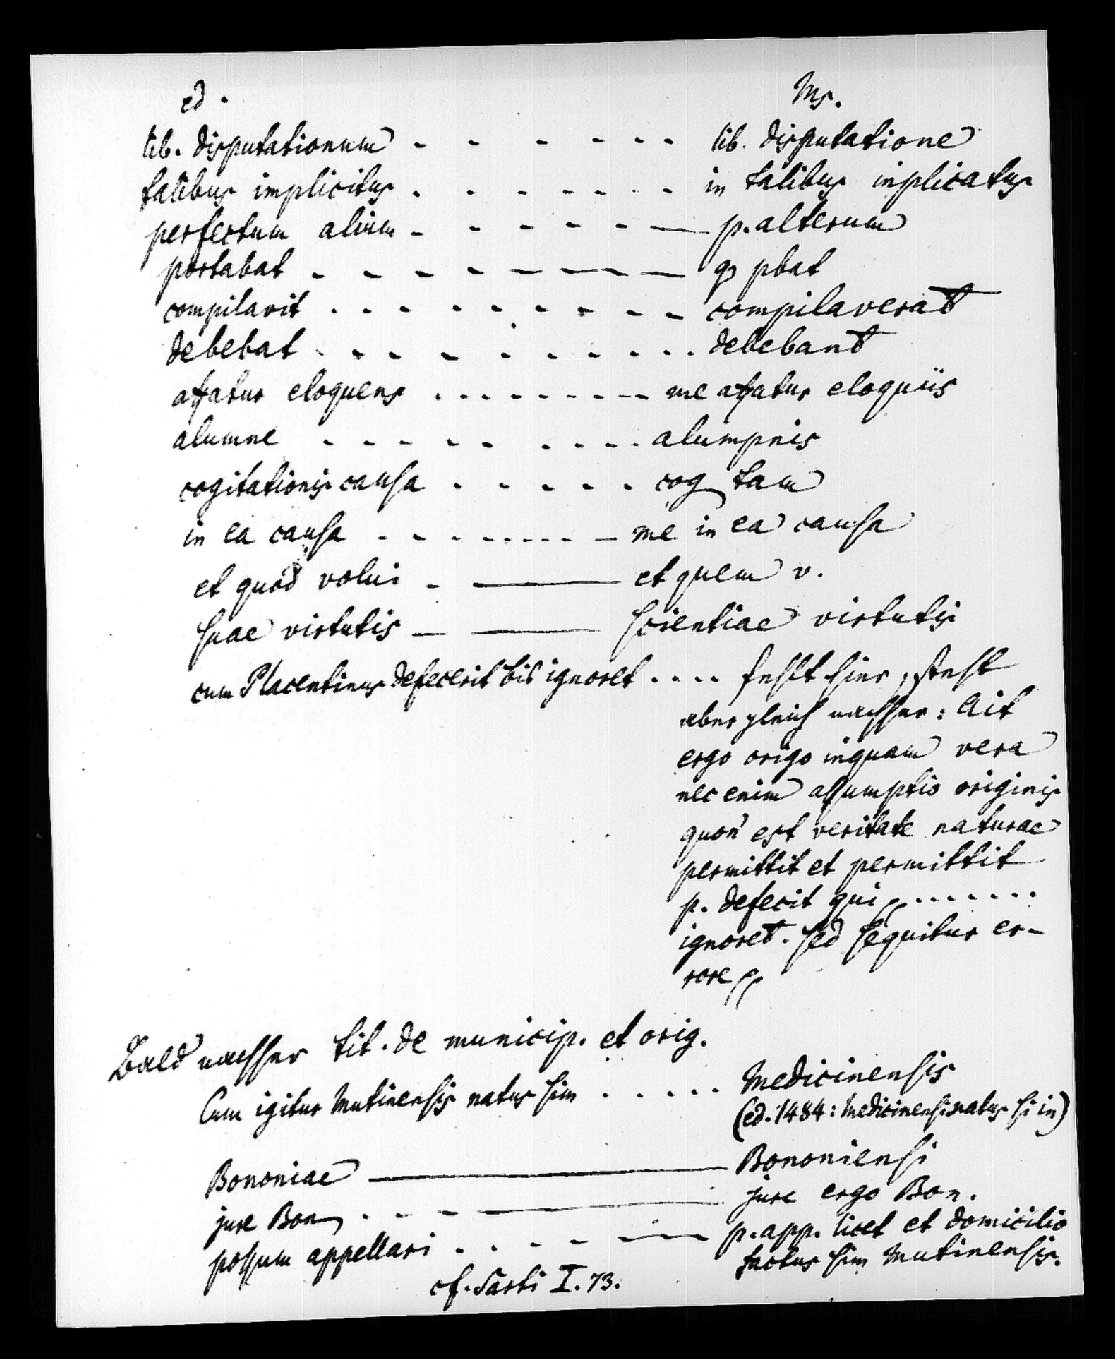 ed. Ms.
lib. disputationum - - - - - - lib. disputatione
talibus implicitus - - - - - - - in talibus inplicatus
perfectum alium - - - - - - p. alterum
portabat - - - - - - - - q pbat
compilavit - - - - - - - - - compilaverat
debebat - - - - - - - - - debebant
affatur eloquens - - - - - - - - me affatur eloquiis
alumne - - - - - - - - - alumpnis
cogitationis causa - - - - - cog tam
in ea causa - - - - - - - - me in ea causa
et quod volui - —— et quem v.
suae virtutis — —— scientiae virtutis
cum Placentinus defecerit bis ignoret .... fehlt hier, steht
aber gleich nachher: Ait
ergo origo inquam vera
nec enim assumptio originis
quon est veritate naturae
permittit et permittit
p. defecit qui .......
ignoret. sed sequitur er-
rore
Bald nachher tit. de municip. et orig.
Cum igitur Mutinensis natus sim ..... Medicinensis
(ed. 1484: Medicinensi natus si in)
Bononiae —— Bononiensi
jure Bon - - - —— jure ergo Bon.
possum appellari - - - - — p. app. licet et domicilio
factus sim Mutinensis.
cf. Sarti I. 73.